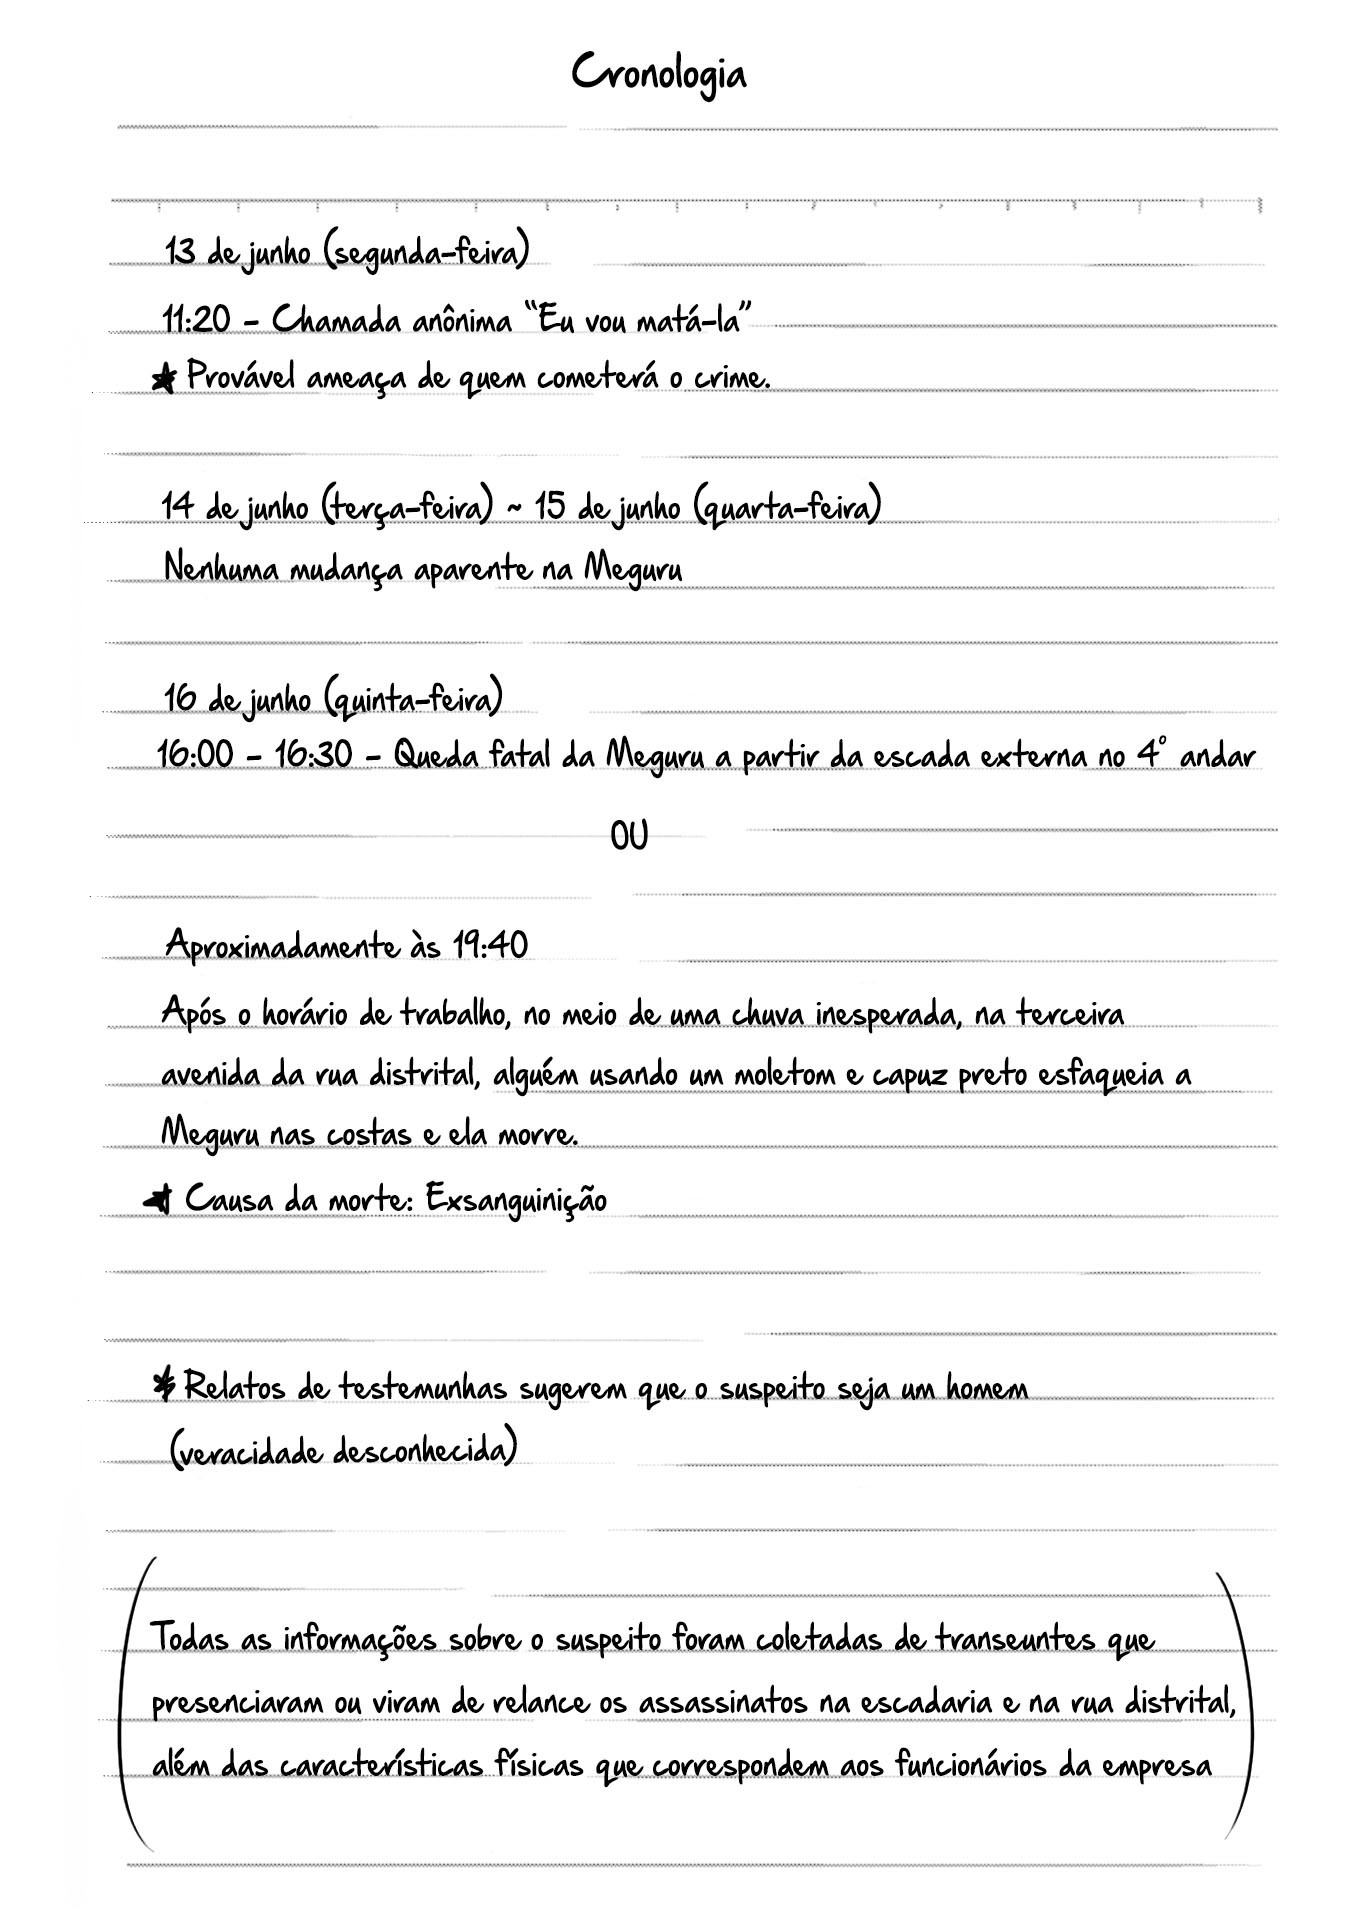 Cronologia
13 de junho (segunda-feira)
11:20 - Chamada anônima "Eu vou matá-la"
★ Provável ameaça de quem cometerá o crime.
14 de junho (terça-feira) ~ 15 de junho (quarta-feira)
Nenhuma mudança aparente na Meguru
16 de junho (quinta-feira)
16:00 - 16:30 - Queda fatal da Meguru a partir da escada externa no 4° andar
OU
Aproximadamente às 19:40
Após o horário de trabalho, no meio de uma chuva inesperada, na terceira
avenida da rua distrital, alguém usando um moletom e capuz preto esfaqueia a
Meguru nas costas e ela morre.
★ Causa da morte: Exsanguinição
★ Relatos de testemunhas sugerem que o suspeito seja um homem
(veracidade desconhecida)
(Todas as informações sobre o suspeito foram coletadas de transeuntes que
presenciaram ou viram de relance os assassinatos na escadaria e na rua distrital,
além das características físicas que correspondem aos funcionários da empresa)